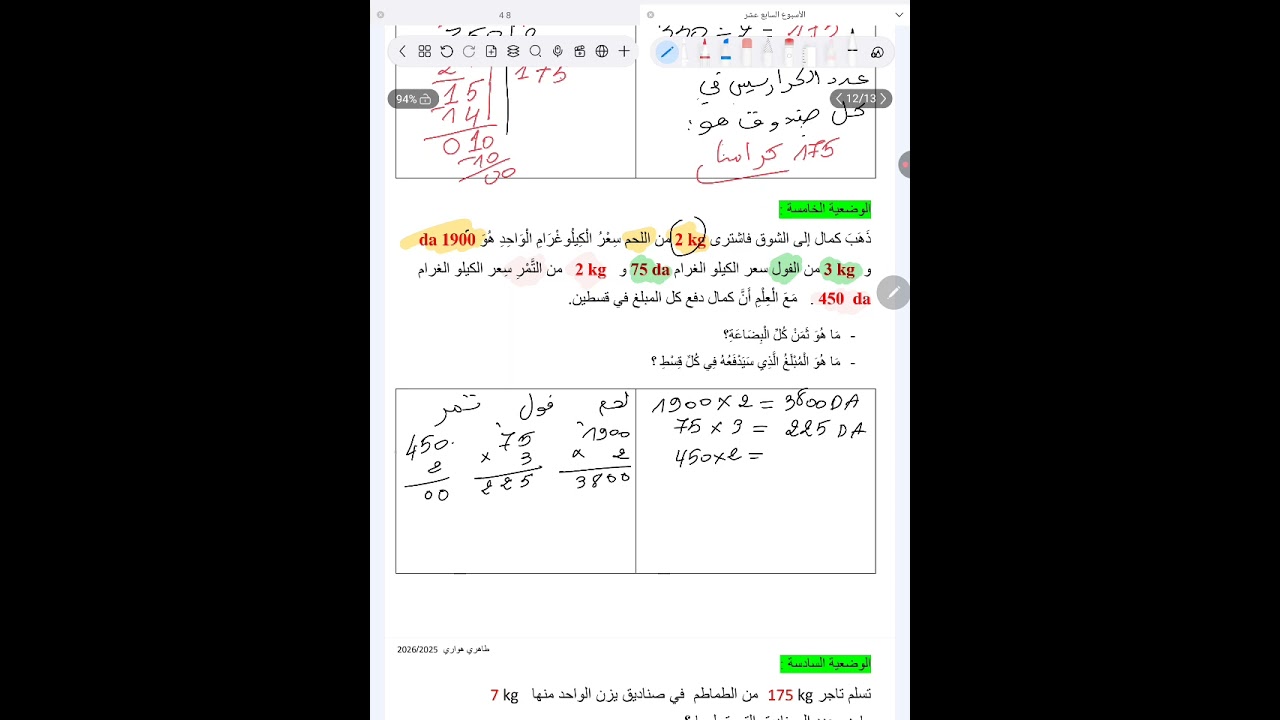 48
الأسبوع السابع عشر
94%
12/13
175
15
14
010
10
00
عدد الكراريس في
كل صندوق هو:
175 كراسا
الوضعية الخامسة :
ذَهَبَ كمال إلى الشوق فاشترى 2 kg من اللحم سِعْرُ الْكِيلُوغْرَامِ الْوَاحِدِ هُوَ 1900 da
و 3 kg من الفول سعر الكيلو الغرام 75 da و 2 kg من التَّمْرِ سِعر الكيلو الغرام
450 da . مَعَ الْعِلْمِ أَنَّ كمال دفع كل المبلغ في قسطين.
- مَا هُوَ ثَمَنْ كُلِّ الْبِضَاعَةِ؟
- مَا هُوَ الْمُبْلَغُ الَّذِي سَيَدْفَعُهُ فِي كُلِّ قِسْطِ ؟
1900 × 2 = 3800 DA
75 × 3 = 225 DA
450 × 2 =
لحم فول تمر
1900
× 2
3800
75
× 3
225
450
2
00
طاهري هواري 2026/2025
الوضعية السادسة :
تسلم تاجر 175 kg من الطماطم في صناديق يزن الواحد منها 7 kg